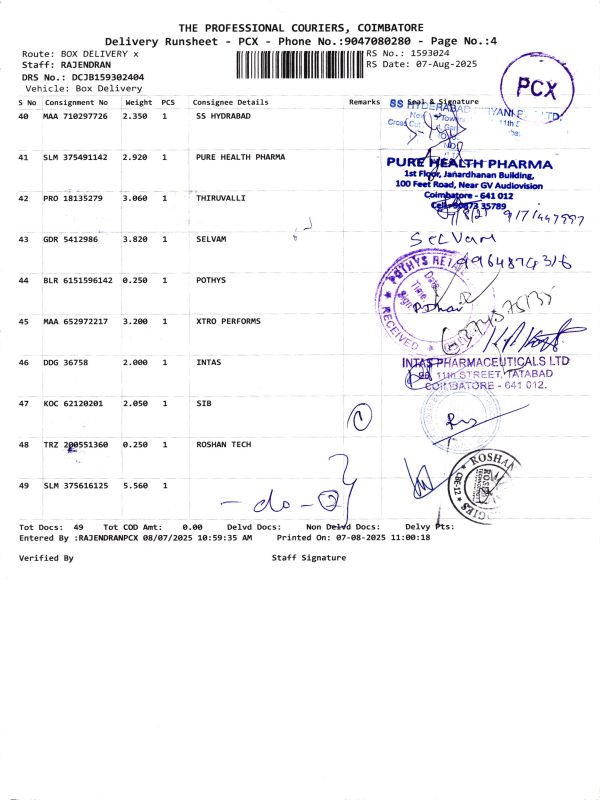 THE PROFESSIONAL COURIERS, COIMBATORE
Delivery Runsheet - PCX - Phone No.:9047080280 - Page No.:4
Route: BOX DELIVERY x RS No.: 1593024
Staff: RAJENDRAN RS Date: 07-Aug-2025
DRS No.: DCJB159302404
Vehicle: Box Delivery
PCX
S No Consignment No Weight PCS Consignee Details Remarks Seal & Signature
40 MAA 710297726 2.350 1 SS HYDRABAD
SS HYDERABAD
41 SLM 375491142 2.920 1 PURE HEALTH PHARMA
PURE HEALTH PHARMA
1st Floor, Janardhanan Building,
100 Feet Road, Near GV Audiovision
Coimbatore - 641 012
Cell: 90873 35789
42 PRO 18135279 3.060 1 THIRUVALLI
43 GDR 5412986 3.820 1 SELVAM
Selvam
44 BLR 6151596142 0.250 1 POTHYS
POTHYS RETAIL
Date
Time
Sign
RECEIVED
45 MAA 652972217 3.200 1 XTRO PERFORMS
46 DDG 36758 2.000 1 INTAS
INTAS PHARMACEUTICALS LTD
11th STREET, TATABAD
COIMBATORE - 641 012.
47 KOC 62120201 2.050 1 SIB
48 TRZ 200551360 0.250 1 ROSHAN TECH
ROSHAN
CBE-12
49 SLM 375616125 5.560 1
-do-
Tot Docs: 49 Tot COD Amt: 0.00 Delvd Docs: Non Delvd Docs: Delvy Pts:
Entered By :RAJENDRANPCX 08/07/2025 10:59:35 AM Printed On: 07-08-2025 11:00:18
Verified By Staff Signature